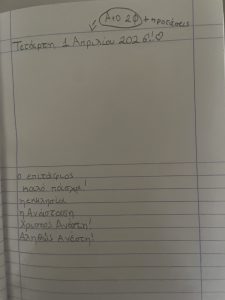 Α+Ο 2Φ + προτάσεις
Τετάρτη 1 Απριλίου 2026!♡
ο επιτάφιος
καλό πάσχα!
η εκκλησία
η Ανάσταση
Χριστός Ανέστη!
Αληθώς Ανέστη!